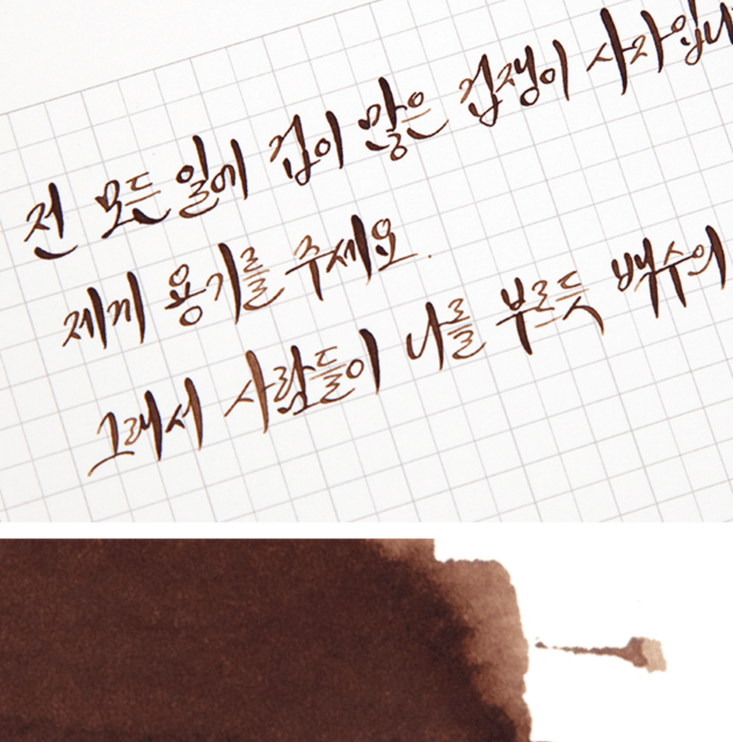 전 모든 일에 겁이 많은 겁쟁이 사자입니
제게 용기를 주세요.
그래서 사람들이 나를 부르듯 백수의